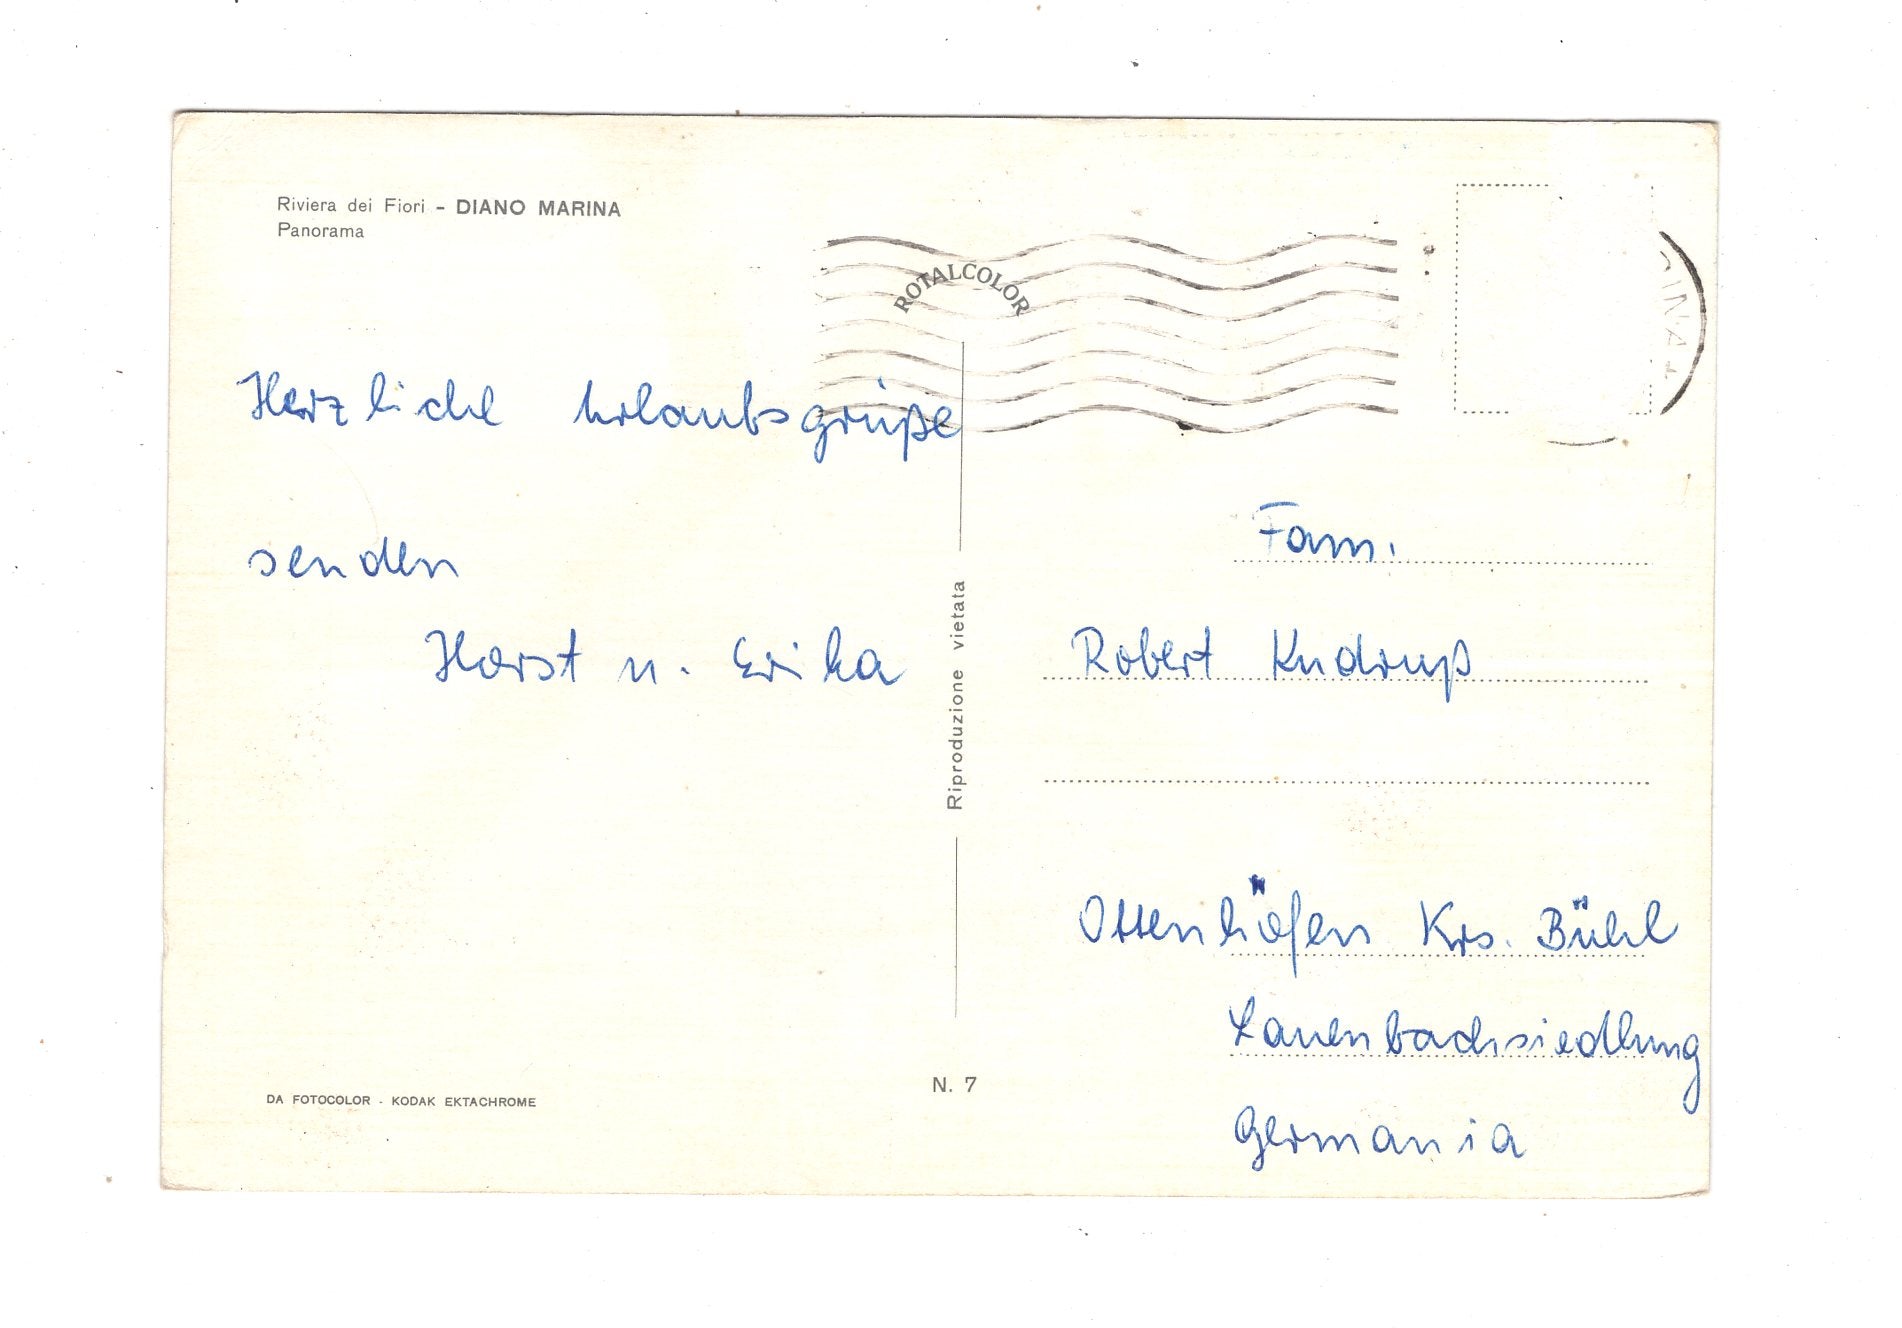 Riviera dei Fiori - DIANO MARINA
Panorama
ROTALCOLOR
Herzliche Urlaubsgrüße
senden
Horst u. Erika
Riproduzione vietata
N. 7
DA FOTOCOLOR - KODAK EKTACHROME
Fam.
Robert Kudruß
Ottenhöfen Krs. Bühl
Lauenbachsiedlung
Germania